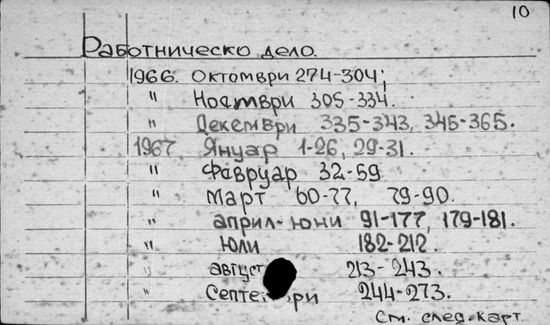 10
Работническо дело.
1966. Октомври 274-304;
" Ноември 305-334.
" Декември 335-343, 345-365.
1967. Януар 1-26, 29-31.
" Фавруар 32-59
" Март 60-77, 79-90.
" април-юни 91-177, 179-181.
" Юли 182-212.
" 213-243.
" 244-273.
См. след. карт